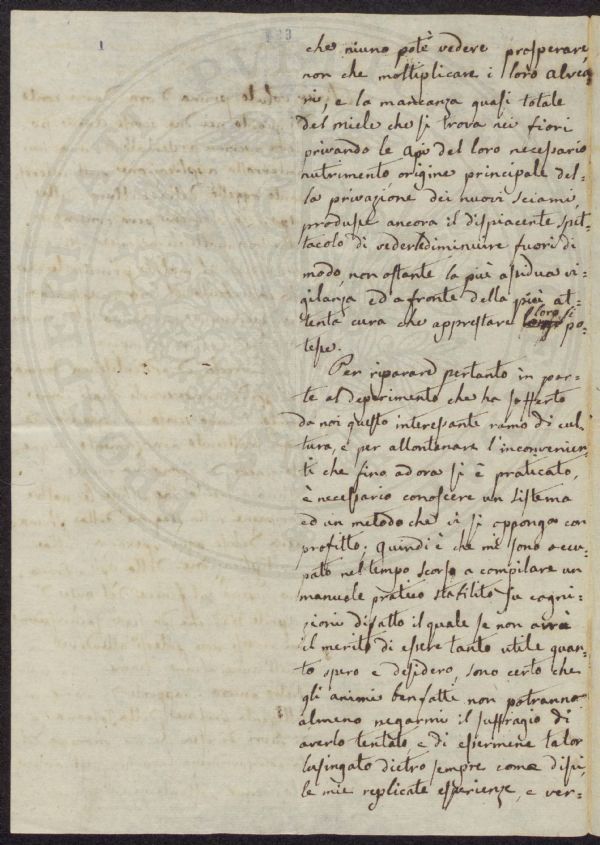 1
che niuno potè vedere prosperare,
non che moltiplicare i loro alvea-
ri, e la mancanza quasi totale
del miele che si trova nei fiori
privando le Api del loro necessario
nutrimento origine principale del=
la privazione dei nuovi sciami,
produsse ancora il dispiacente spet=
tacolo di vederle diminuire fuori di
modo, non ostante la più assidua vi=
gilanza ed a fronte della più at=
tenta cura che apprestare loro si po=
tesse.
Per riparare pertanto in par=
te al deperimento che ha sofferto
da noi questo interessante ramo di cul=
tura, e per allontanare l'inconvenien=
ti che fino ad ora si è praticato,
è necessario conoscere un sistema
ed un metodo che vi si oppongo con
profitto; quindi è che mi sono occu=
pato nel tempo scorso a compilare un
manuale pratico stabilito su cogni=
zioni di fatto il quale se non avrà
il merito di essere tanto utile quan=
to spero e desidero, sono certo che
gli animi benfatti non potranno
almeno negarmi il suffragio di
averlo tentato, e di essermene talor
lusingato dietro sempre come dissi,
le mie replicate esperienze, e ver=